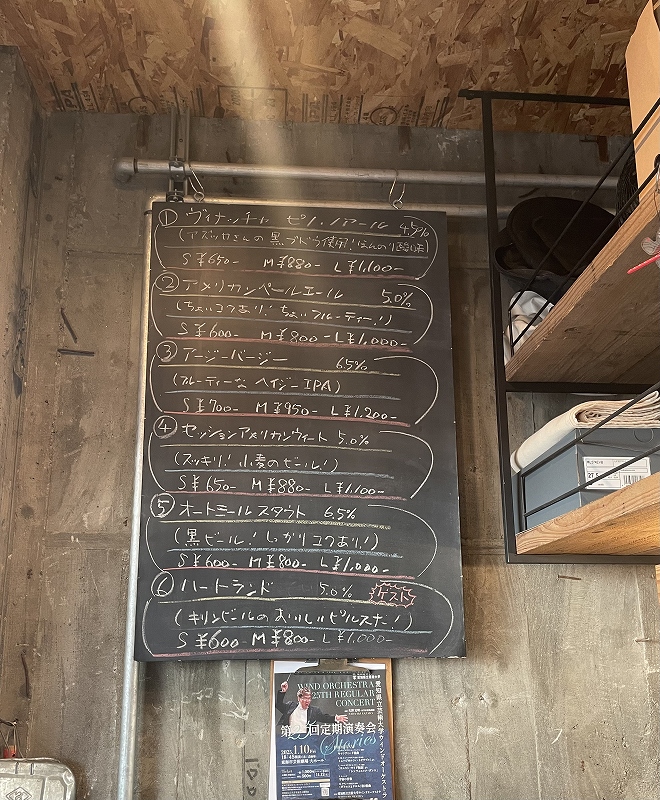 ① ヴィナッチャ ピノ・ノアール 4.5%
(アズッカさんの黒ブドウ使用!ほんのり酸味)
S ¥650- M ¥880- L ¥1,100-
② アメリカンペールエール 5.0%
(ちょいコクあり! ちょいフルーティー!)
S ¥600- M ¥800- L ¥1,000-
③ アージーバージー 6.5%
(フルーティーな ヘイジーIPA)
S ¥700- M ¥950- L ¥1,200-
④ セッションアメリカンウィート 5.0%
(スッキリ! 小麦のビール!)
S ¥650- M ¥880- L ¥1,100-
⑤ オートミールスタウト 6.5%
(黒ビール! しっかりコクあり!)
S ¥600- M ¥800- L ¥1,000-
⑥ ハートランド 5.0% ゲスト
(キリンビールのおいしいピルスナー!)
S ¥600- M ¥800- L ¥1,000-
WIND ORCHESTRA
25TH REGULAR
CONCERT
愛知県立芸術大学ウインドオーケストラ
第25回定期演奏会
Stories
1.10